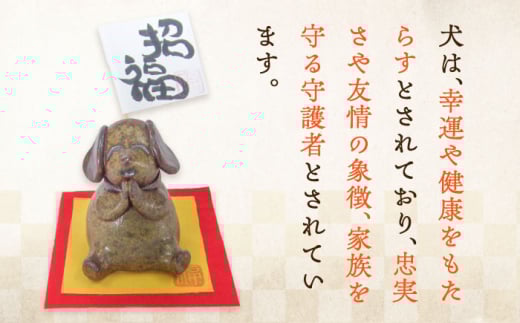 犬は、幸運や健康をもた
らすとされており、忠実
さや友情の象徴、家族を
守る守護者とされてい
ます。
招福